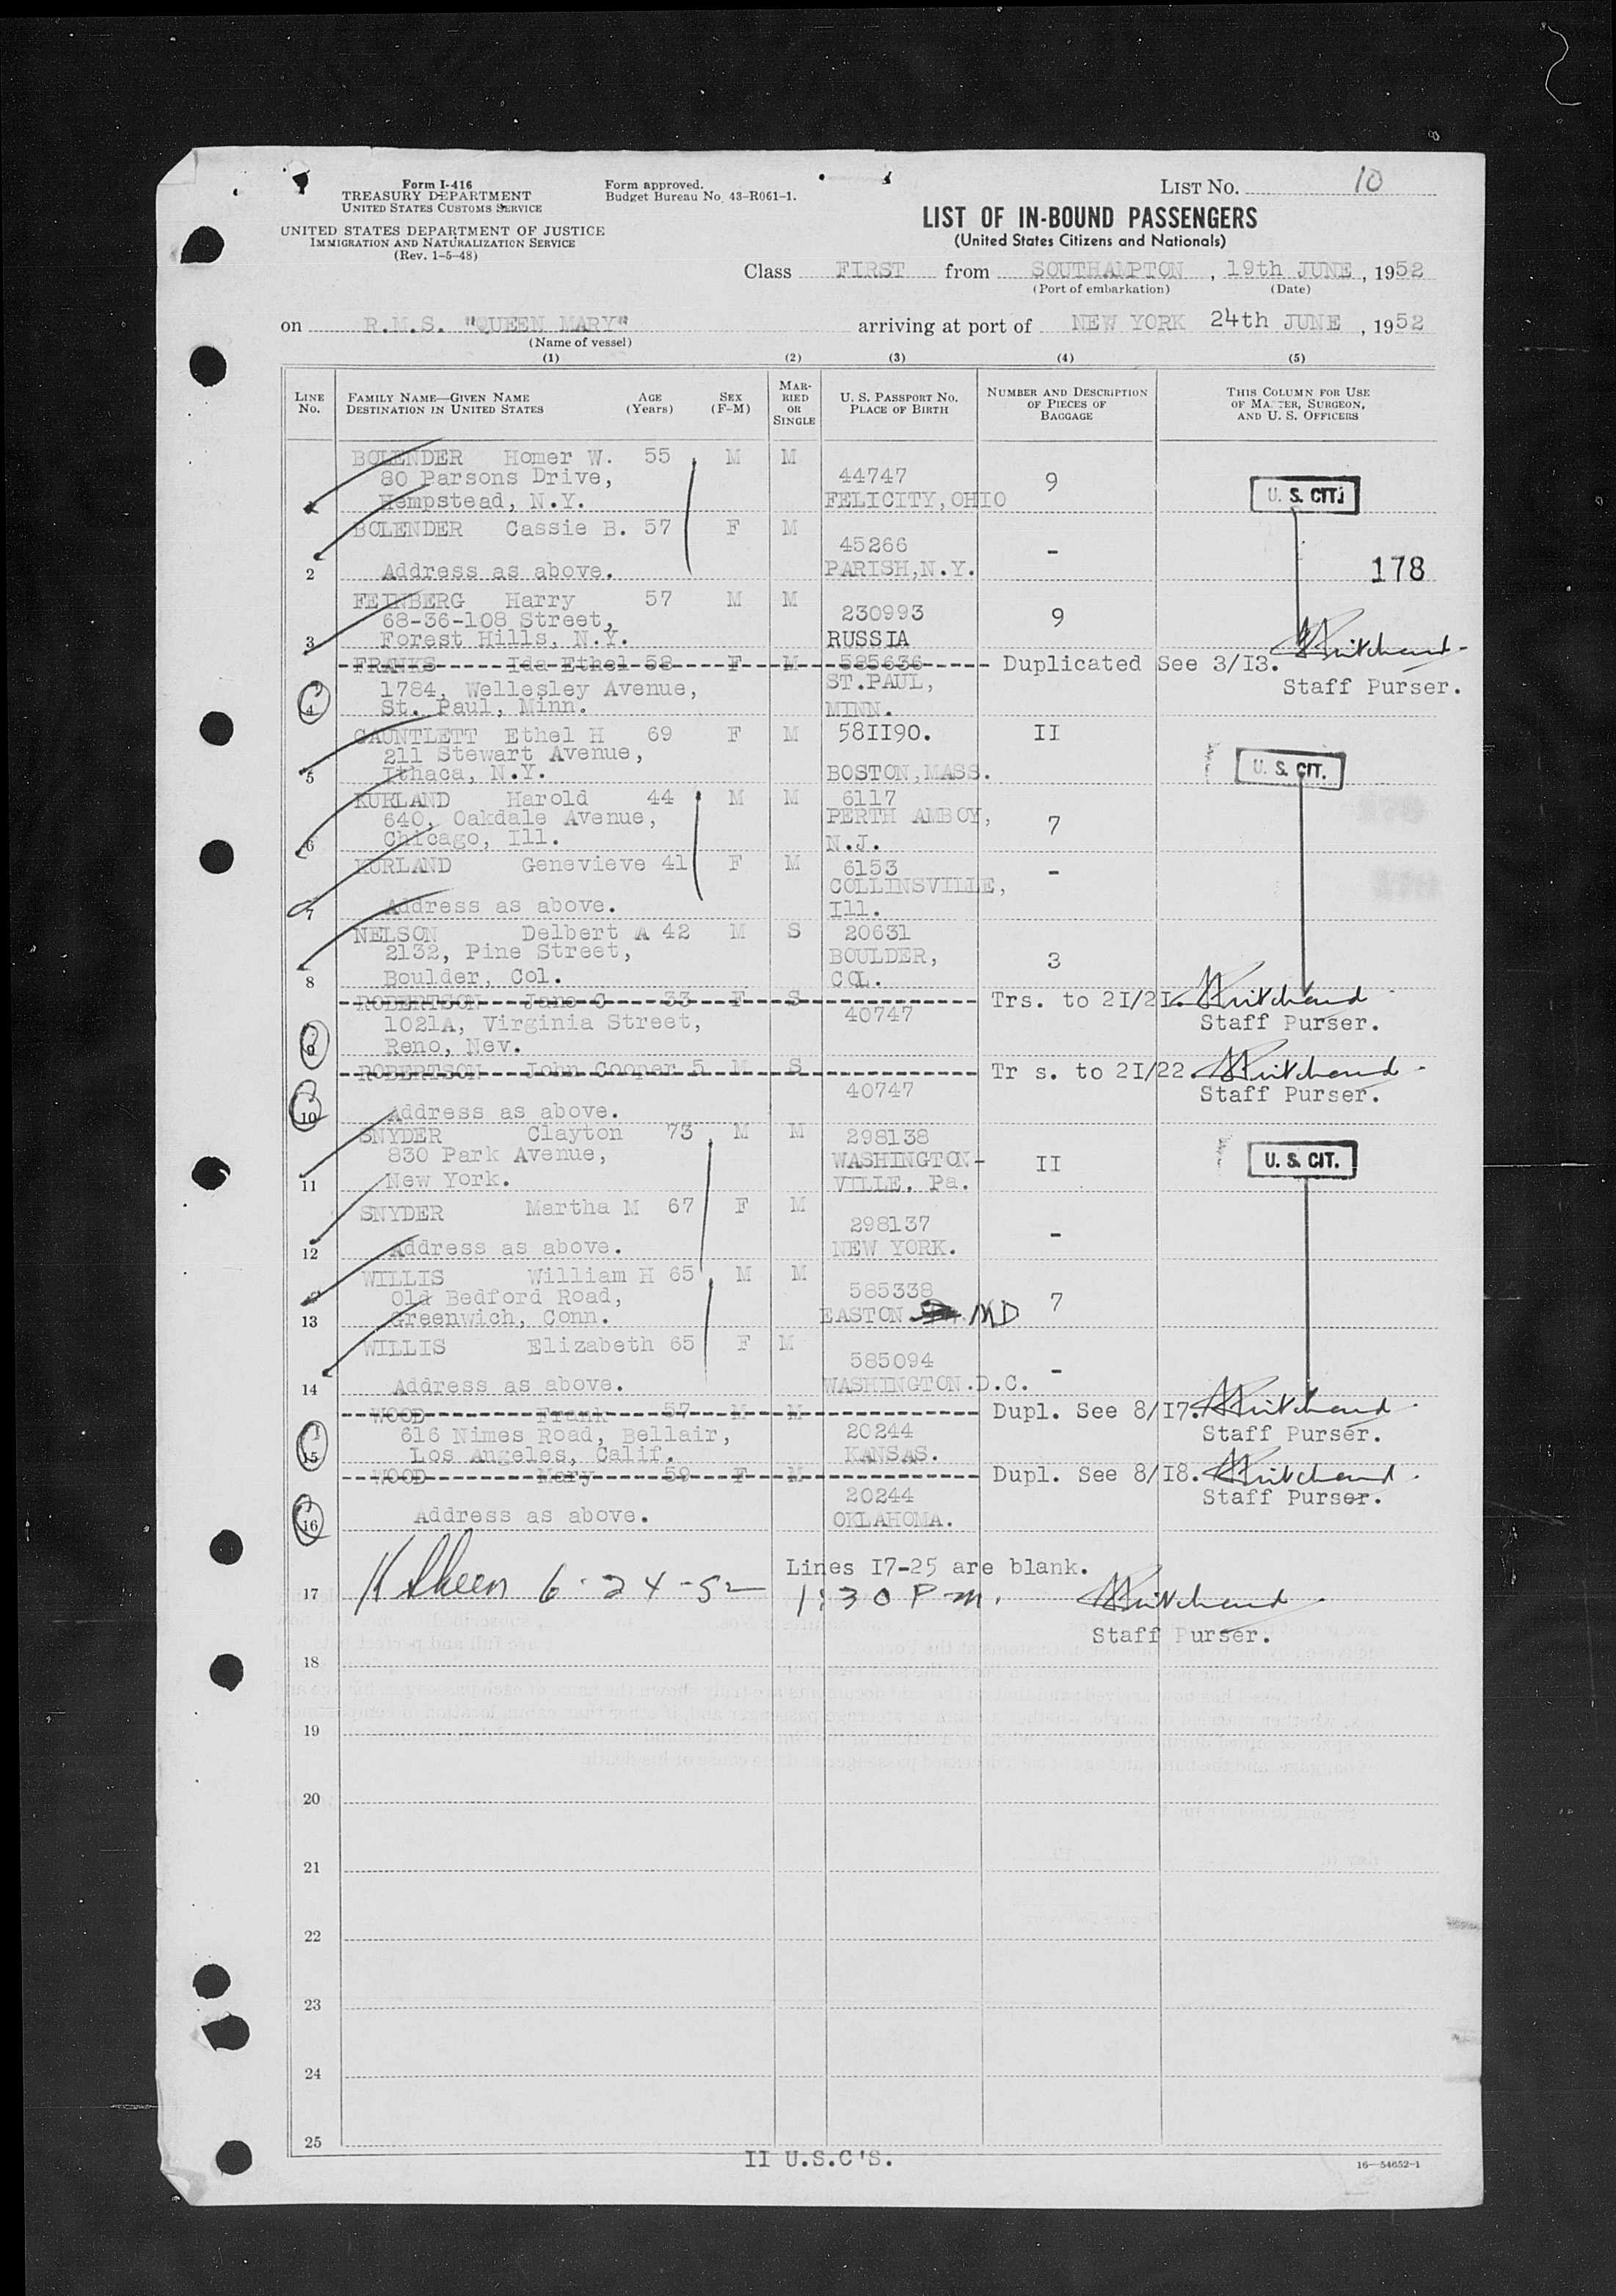 Form I-416
TREASURY DEPARTMENT
UNITED STATES CUSTOMS SERVICE
UNITED STATES DEPARTMENT OF JUSTICE
IMMIGRATION AND NATURALIZATION SERVICE
(Rev. 1-5-48)
Form approved.
Budget Bureau No. 43-R061-1.
LIST No. 10
LIST OF IN-BOUND PASSENGERS
(United States Citizens and Nationals)
Class FIRST from SOUTHAMPTON, 19th JUNE, 1952
(Port of embarkation) (Date)
on R.M.S. "QUEEN MARY" arriving at port of NEW YORK 24th JUNE, 1952
(Name of vessel)
(1) (2) (3) (4) (5)
LINE No. FAMILY NAME—GIVEN NAME DESTINATION IN UNITED STATES AGE (Years) SEX (F-M) MARRIED OR SINGLE U. S. PASSPORT No. PLACE OF BIRTH NUMBER AND DESCRIPTION OF PIECES OF BAGGAGE THIS COLUMN FOR USE OF MASTER, SURGEON, AND U. S. OFFICERS
BOLENDER Homer W. 55 M M
80 Parsons Drive, 44747 9
1 Hempstead, N.Y. FELICITY, OHIO U. S. CIT.
BOLENDER Cassie B. 57 F M
45266 -
2 Address as above. PARISH, N.Y. 178
FEINBERG Harry 57 M M
68-36-108 Street, 230993 9
3 Forest Hills, N.Y. RUSSIA Pritchard
FRANKS Ida Ethel 58 F M 585636 Duplicated See 3/I3.
1784, Wellesley Avenue, ST.PAUL, Staff Purser.
4 St. Paul, Minn. MINN.
GAUNTLETT Ethel H 69 F M 58II90. II
211 Stewart Avenue,
5 Ithaca, N.Y. BOSTON, MASS. U. S. CIT.
KURLAND Harold 44 M M 6117
640, Oakdale Avenue, PERTH AMBOY, 7
6 Chicago, Ill. N.J.
KURLAND Genevieve 41 F M 6153 -
COLLINSVILLE,
7 Address as above. Ill.
NELSON Delbert A 42 M S 20631
2132, Pine Street, BOULDER, 3
8 Boulder, Col. COL.
ROBERTSON Jane C 33 F S Trs. to 2I/2I. Pritchard
1021A, Virginia Street, 40747 Staff Purser.
9 Reno, Nev.
ROBERTSON John Cooper 5 M S Tr s. to 2I/22. Pritchard
40747 Staff Purser.
10 Address as above.
SNYDER Clayton 73 M M 298138
830 Park Avenue, WASHINGTON- II U. S. CIT.
11 New York. VILLE. Pa.
SNYDER Martha M 67 F M
298137 -
12 Address as above. NEW YORK.
WILLIS William H 65 M M
Old Bedford Road, 585338 7
13 Greenwich, Conn. EASTON MD
WILLIS Elizabeth 65 F M
585094 -
14 Address as above. WASHINGTON.D.C.
WOOD Frank 57 M M Dupl. See 8/I7. Pritchard
616 Nimes Road, Bellair, 20244 Staff Purser.
15 Los Angeles, Calif. KANSAS.
WOOD Mary 59 F M Dupl. See 8/I8. Pritchard
20244 Staff Purser.
16 Address as above. OKLAHOMA.
Lines I7-25 are blank.
17 6-24-52 1:30 P m. Pritchard
Staff Purser.
18
19
20
21
22
23
24
25
II U.S.C'S.
16—54652-1